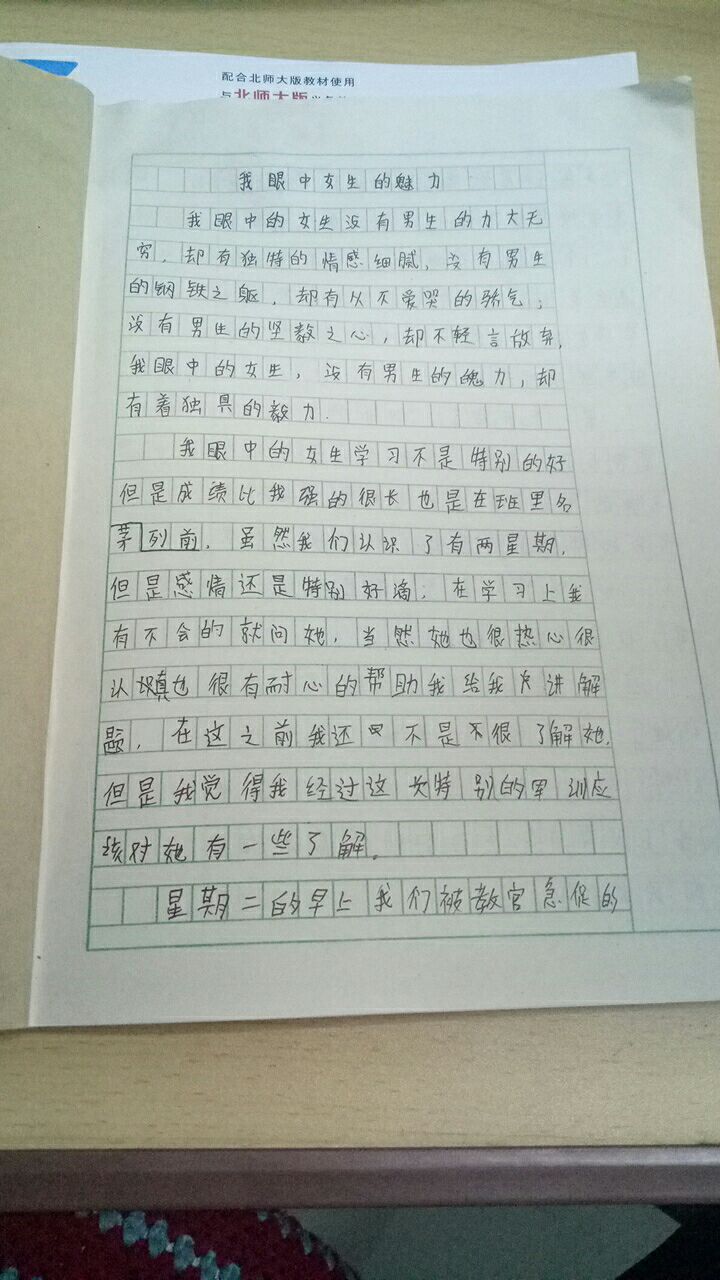 配合北师大版教材使用
与北师大版
我眼中女生的魅力
我眼中的女生没有男生的力大无
穷，却有独特的情感细腻，没有男生
的钢铁之躯，却有从不爱哭的骄气；
没有男生的坚毅之心，却不轻言放弃，
我眼中的女生，没有男生的魄力，却
有着独具的毅力.
我眼中的女生学习不是特别的好
但是成绩比我强的很长也是在班里名
茅列前．虽然我们认识了有两星期，
但是感情还是特别好滴；在学习上我
有不会的就问她，当然她也很热心很
认真也很有耐心的帮助我给我讲解
题，在这之前我还不是不很了解她.
但是我觉得我经过这次特别的军训应
该对她有一些了解。
星期二的早上我们被教官急促的